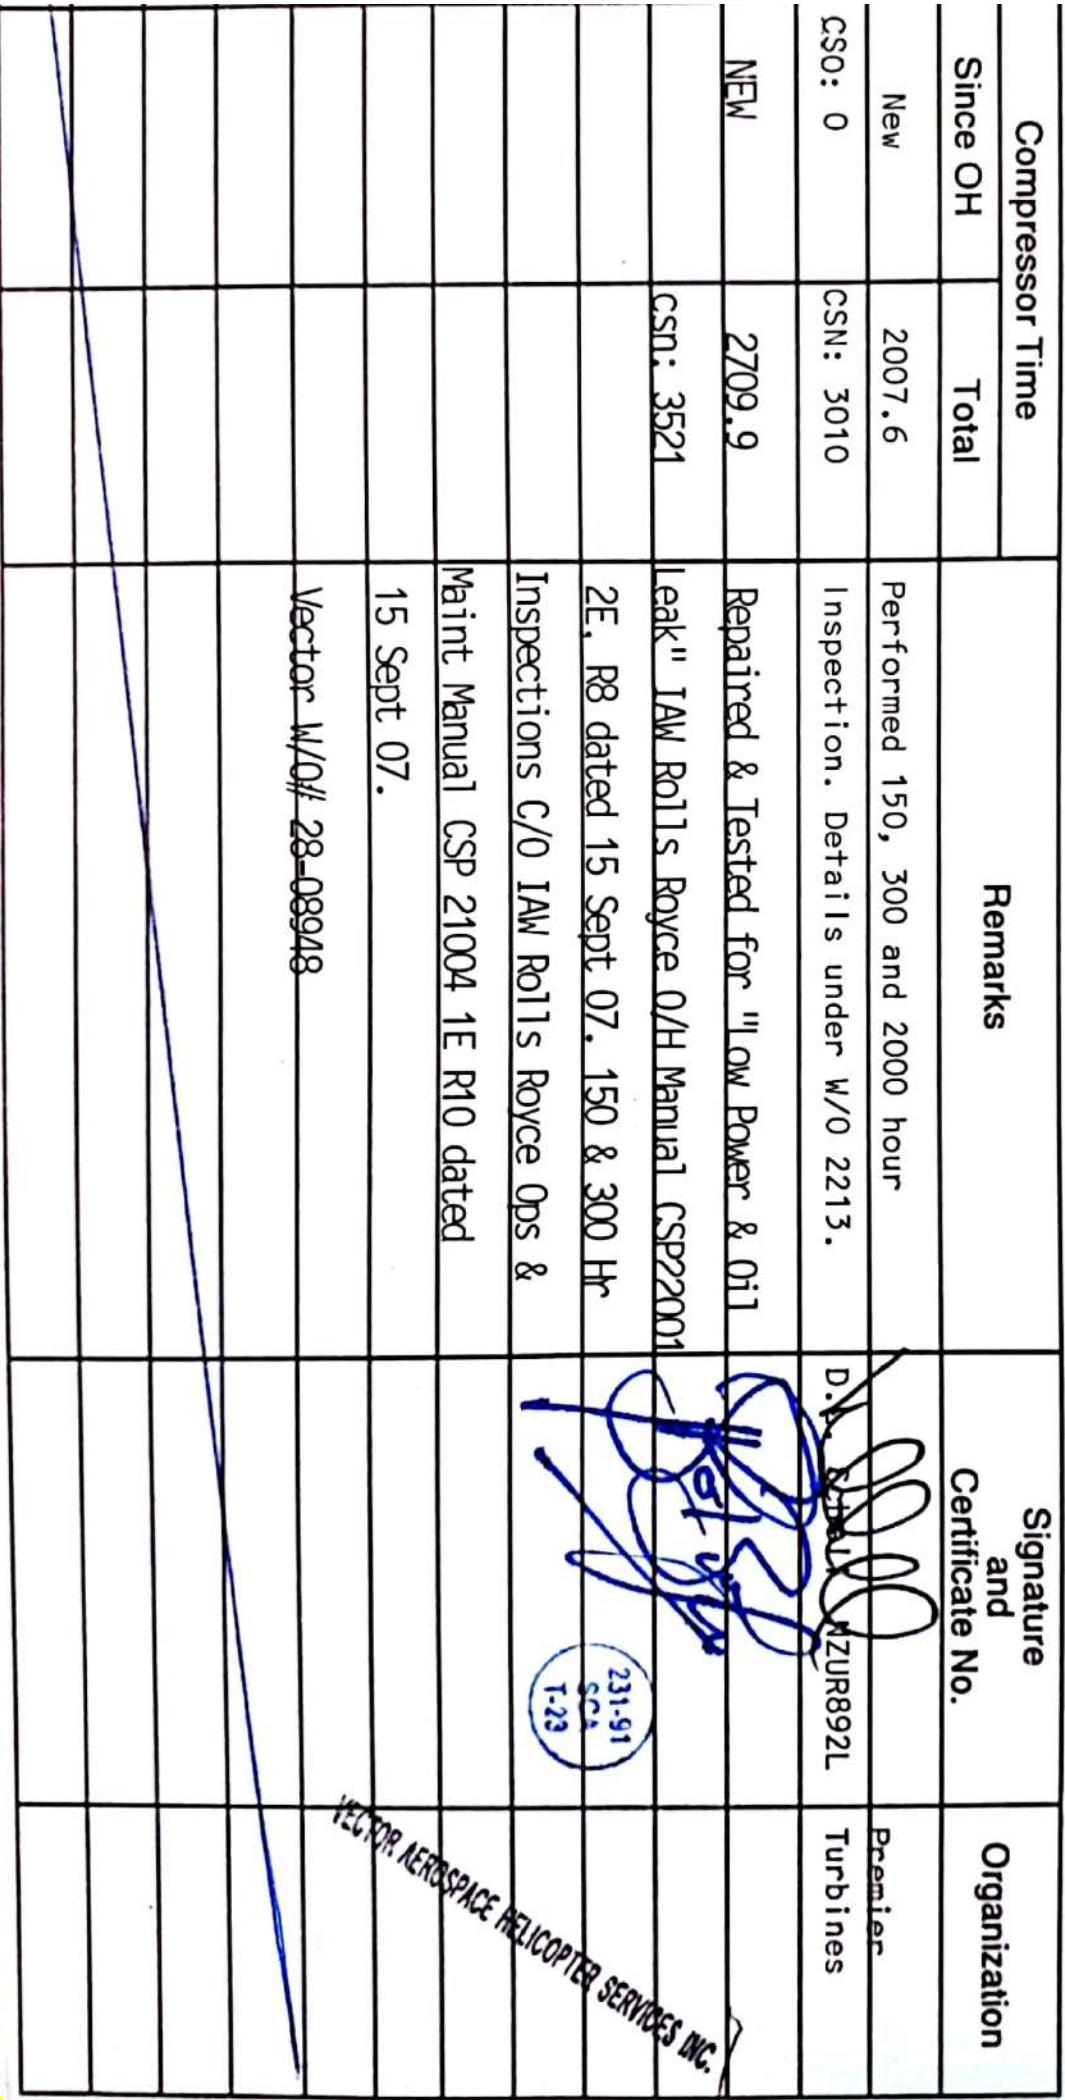 Compressor Time
Since OH
Total
Remarks
Signature
and
Certificate No.
Organization
New
2007.6
Performed 150, 300 and 2000 hour
Premier
CSO: 0
CSN: 3010
Inspection. Details under W/O 2213.
NZUR892L
Turbines
NEW
2709.9
Repaired & Tested for "Low Power & Oil
csn: 3521
Leak" IAW Rolls Royce O/H Manual CSP22001
2E, R8 dated 15 Sept 07. 150 & 300 Hr
Inspections C/O IAW Rolls Royce Ops &
Maint Manual CSP 21004 1E R10 dated
15 Sept 07.
Vector W/O# 28-08948
231-91
SCA
T-23
VECTOR AEROSPACE HELICOPTER SERVICES INC.